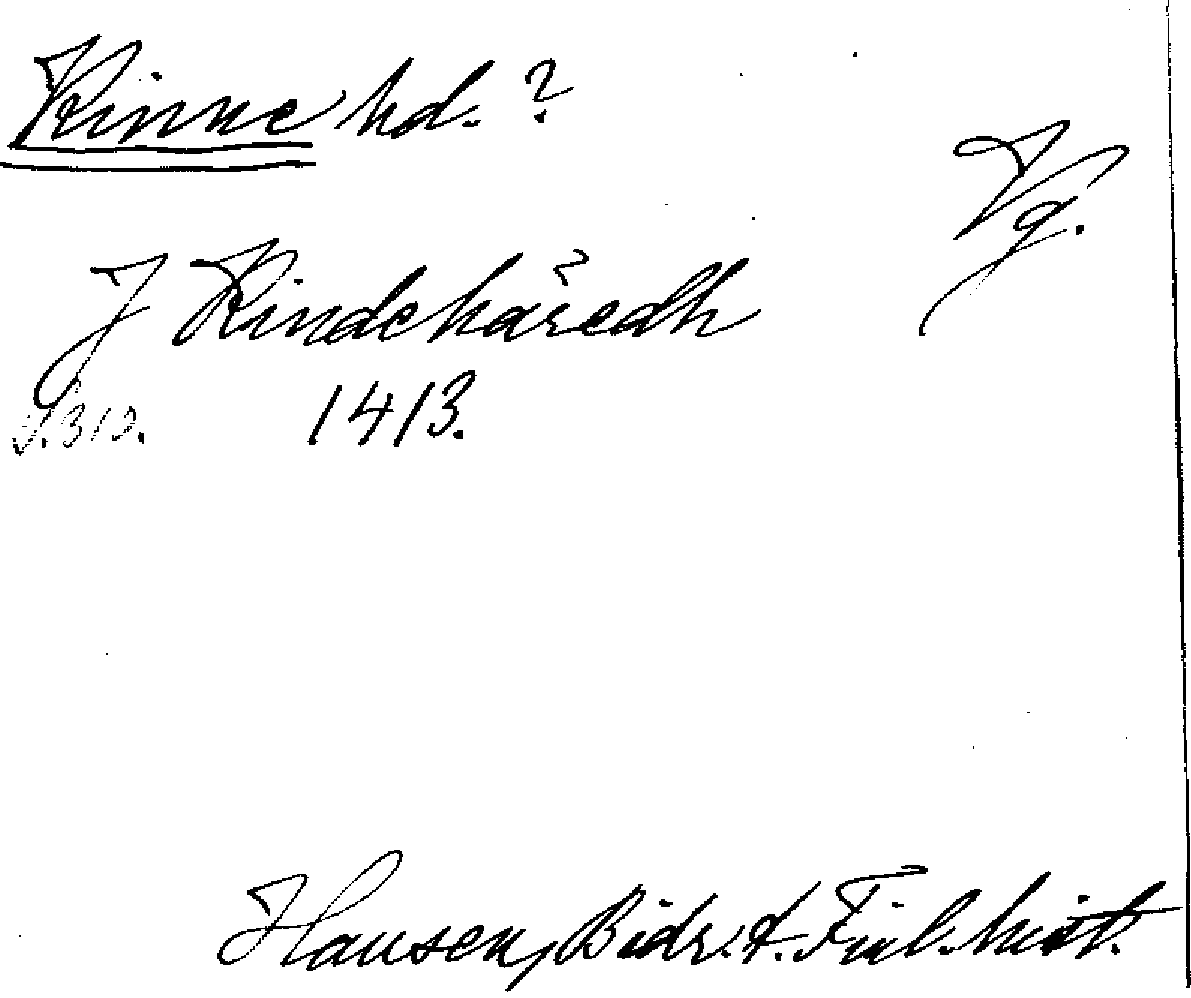 Kinne hd. ?
Vg.
J Kindehäredh
s. 313. 1413.
Hausen, Bidr. t. Finl. hist.